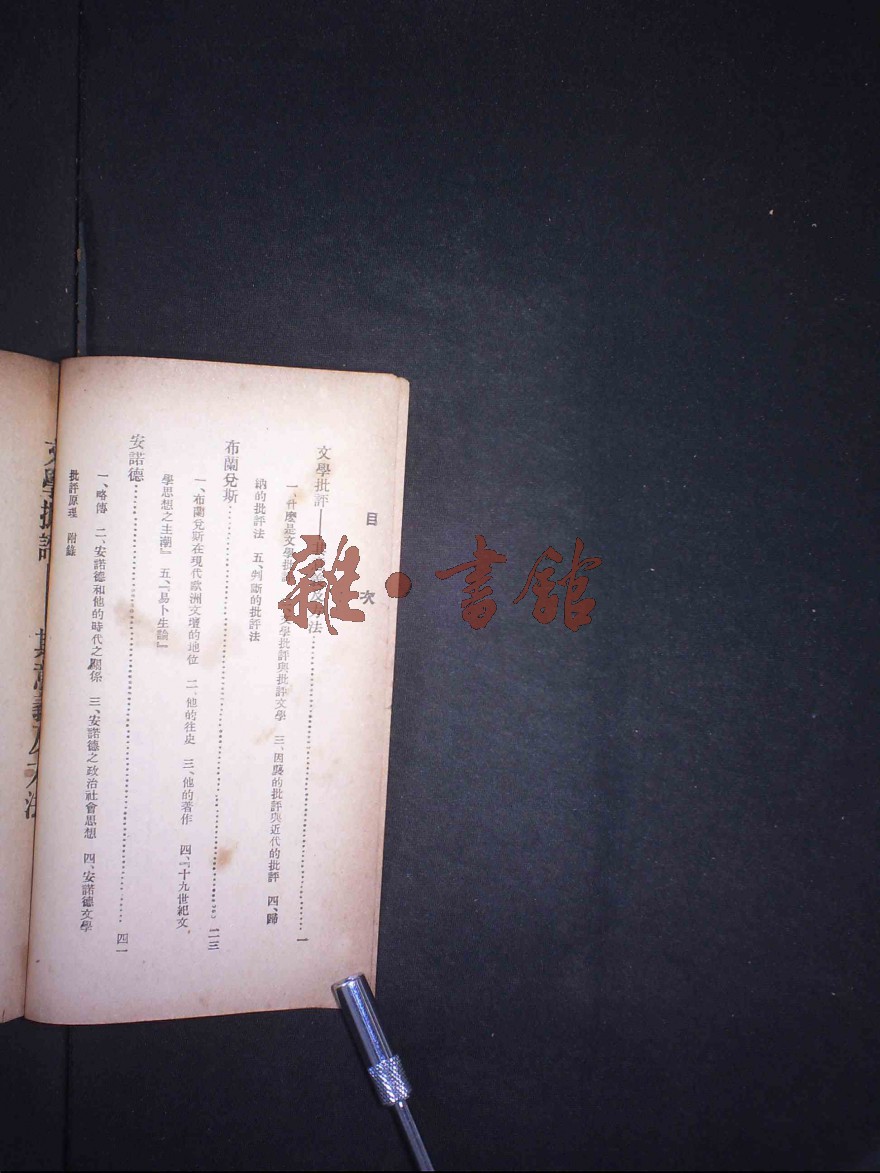 目 次
文學批評——其意義及方法……一
一、什麼是文學批評 二、文學批評與批評文學 三、因襲的批評與近代的批評 四、歸
納的批評法 五、判斷的批評法
布蘭兌斯……二三
一、布蘭兌斯在現代歐洲文壇的地位 二、他的往史 三、他的著作 四、『十九世紀文
學思想之主潮』 五、『易卜生論』
安諾德……四一
一、略傳 二、安諾德和他的時代之關係 三、安諾德之政治社會思想 四、安諾德文學
批評原理 附錄
文學批評——其意義及方法
雜·書館